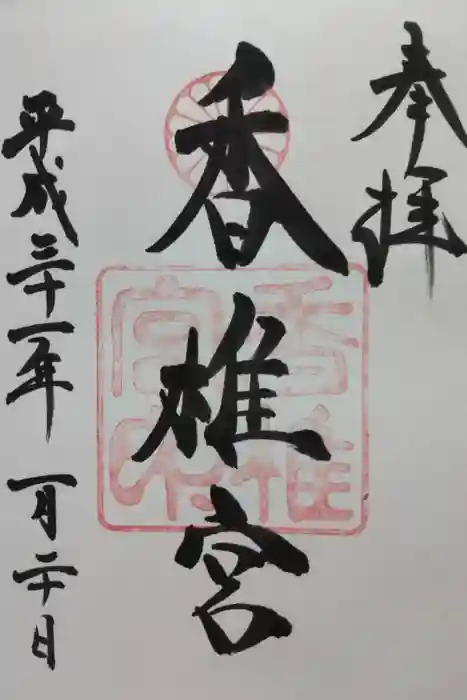 奉拝
香椎宮
平成三十一年 一月二十日
香椎宮印